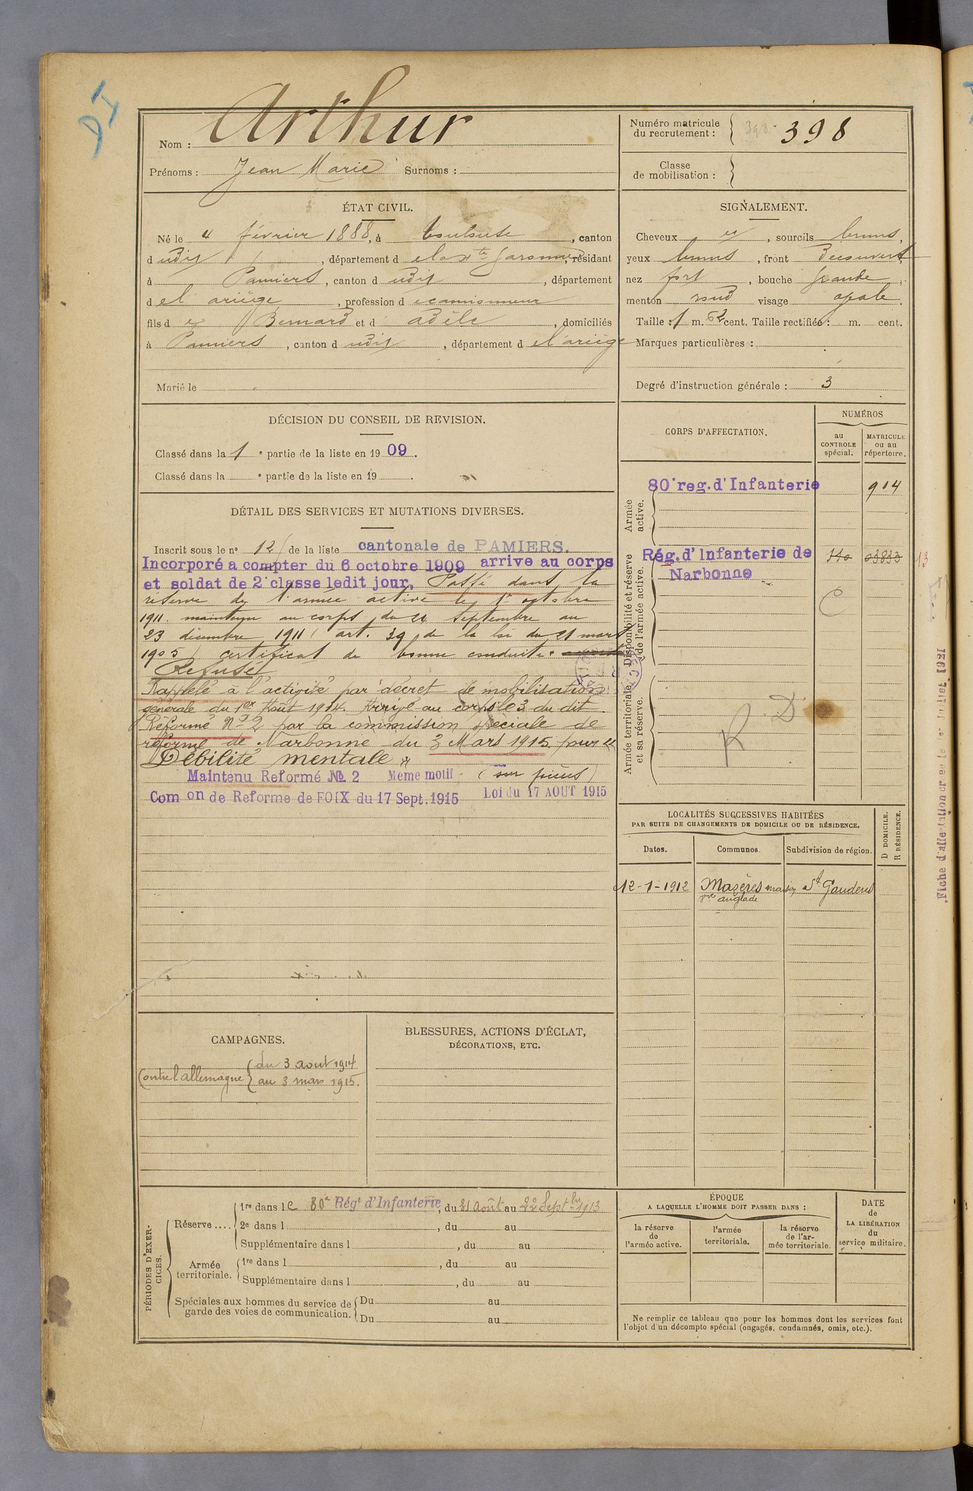 Nom : Arthur
Prénoms : Jean Marie Surnoms :
Numéro matricule
du recrutement : 398
Classe
de mobilisation :
ÉTAT CIVIL.
Né le 4 février 1888, à Toulouse, canton
dudit, département de la Hte Garonne, résidant
à Pamiers, canton dudit, département
de l'ariège, profession d camionneur
fils de Bernard et d adèle, domiciliés
à Pamiers, canton dudit, département de l'ariège
Marié le
SIGNALEMENT.
Cheveux et, sourcils bruns,
yeux bruns, front Découvert
nez fort, bouche grande,
menton rond visage ovale.
Taille : 1 m. 62 cent. Taille rectifiée : m. cent.
Marques particulières :
Degré d'instruction générale : 3
DÉCISION DU CONSEIL DE REVISION.
Classé dans la 1e partie de la liste en 1909.
Classé dans la e partie de la liste en 19 .
CORPS D'AFFECTATION.
NUMÉROS
au
CONTROLE
spécial.
MATRICULE
ou au
répertoire.
Armée
active.
80e reg. d'Infanterie 914
Disponibilité et réserve
de l'armée active.
Rég. d'Infanterie de
Narbonne
C
Armée territoriale
et sa réserve.
R D
DÉTAIL DES SERVICES ET MUTATIONS DIVERSES.
Inscrit sous le no 12 de la liste cantonale de PAMIERS.
Incorporé a compter du 6 octobre 1909 arrive au corps
et soldat de 2e classe ledit jour. Passé dans la
réserve de l'armée active le 1er octobre
1911. maintenu au corps du 24 septembre au
23 décembre 1911 (art. 39 de la loi du 21 mars
1905) certificat de bonne conduite
Refusé
Rappelé à l'activité par décret de mobilisation
générale du 1er Août 1914. Arrivé au corps le 3 du dit.
Réformé No 2 par la commission speciale de
réforme de Narbonne du 3 Mars 1915 pour "
Débilité mentale "
Maintenu Reformé No 2 Meme motif (sur pièces)
Comon de Reforme de FOIX du 17 Sept. 1915 Loi du 17 AOUT 1915
LOCALITÉS SUCCESSIVES HABITÉES
PAR SUITE DE CHANGEMENTS DE DOMICILE OU DE RÉSIDENCE.
Dates. Communes. Subdivision de région. D DOMICILE. R RÉSIDENCE.
12-1-1912 Mazères St Gaudens
anglade
Fiche d'affectation créée le 1er Juillet 1921
CAMPAGNES.
Contre l'allemagne du 3 aout 1914
au 3 mars 1915.
BLESSURES, ACTIONS D'ÉCLAT,
DÉCORATIONS, ETC.
PÉRIODES D'EXERCICES.
Réserve ....
1re dans le 80e Régt d'Infanterie, du 31 août au 22 Septbre 1913
2e dans l , du au
Supplémentaire dans l , du au
Armée
territoriale.
1re dans l , du au
Supplémentaire dans l , du au
Spéciales aux hommes du service de
garde des voies de communication.
Du au
Du au
ÉPOQUE
A LAQUELLE L'HOMME DOIT PASSER DANS :
la réserve
de
l'armée active.
l'armée
territoriale.
la réserve
de l'ar-
mée territoriale.
DATE
de
LA LIBÉRATION
du
service militaire.
Ne remplir ce tableau que pour les hommes dont les services font
l'objet d'un décompte spécial (engagés, condamnés, omis, etc.).